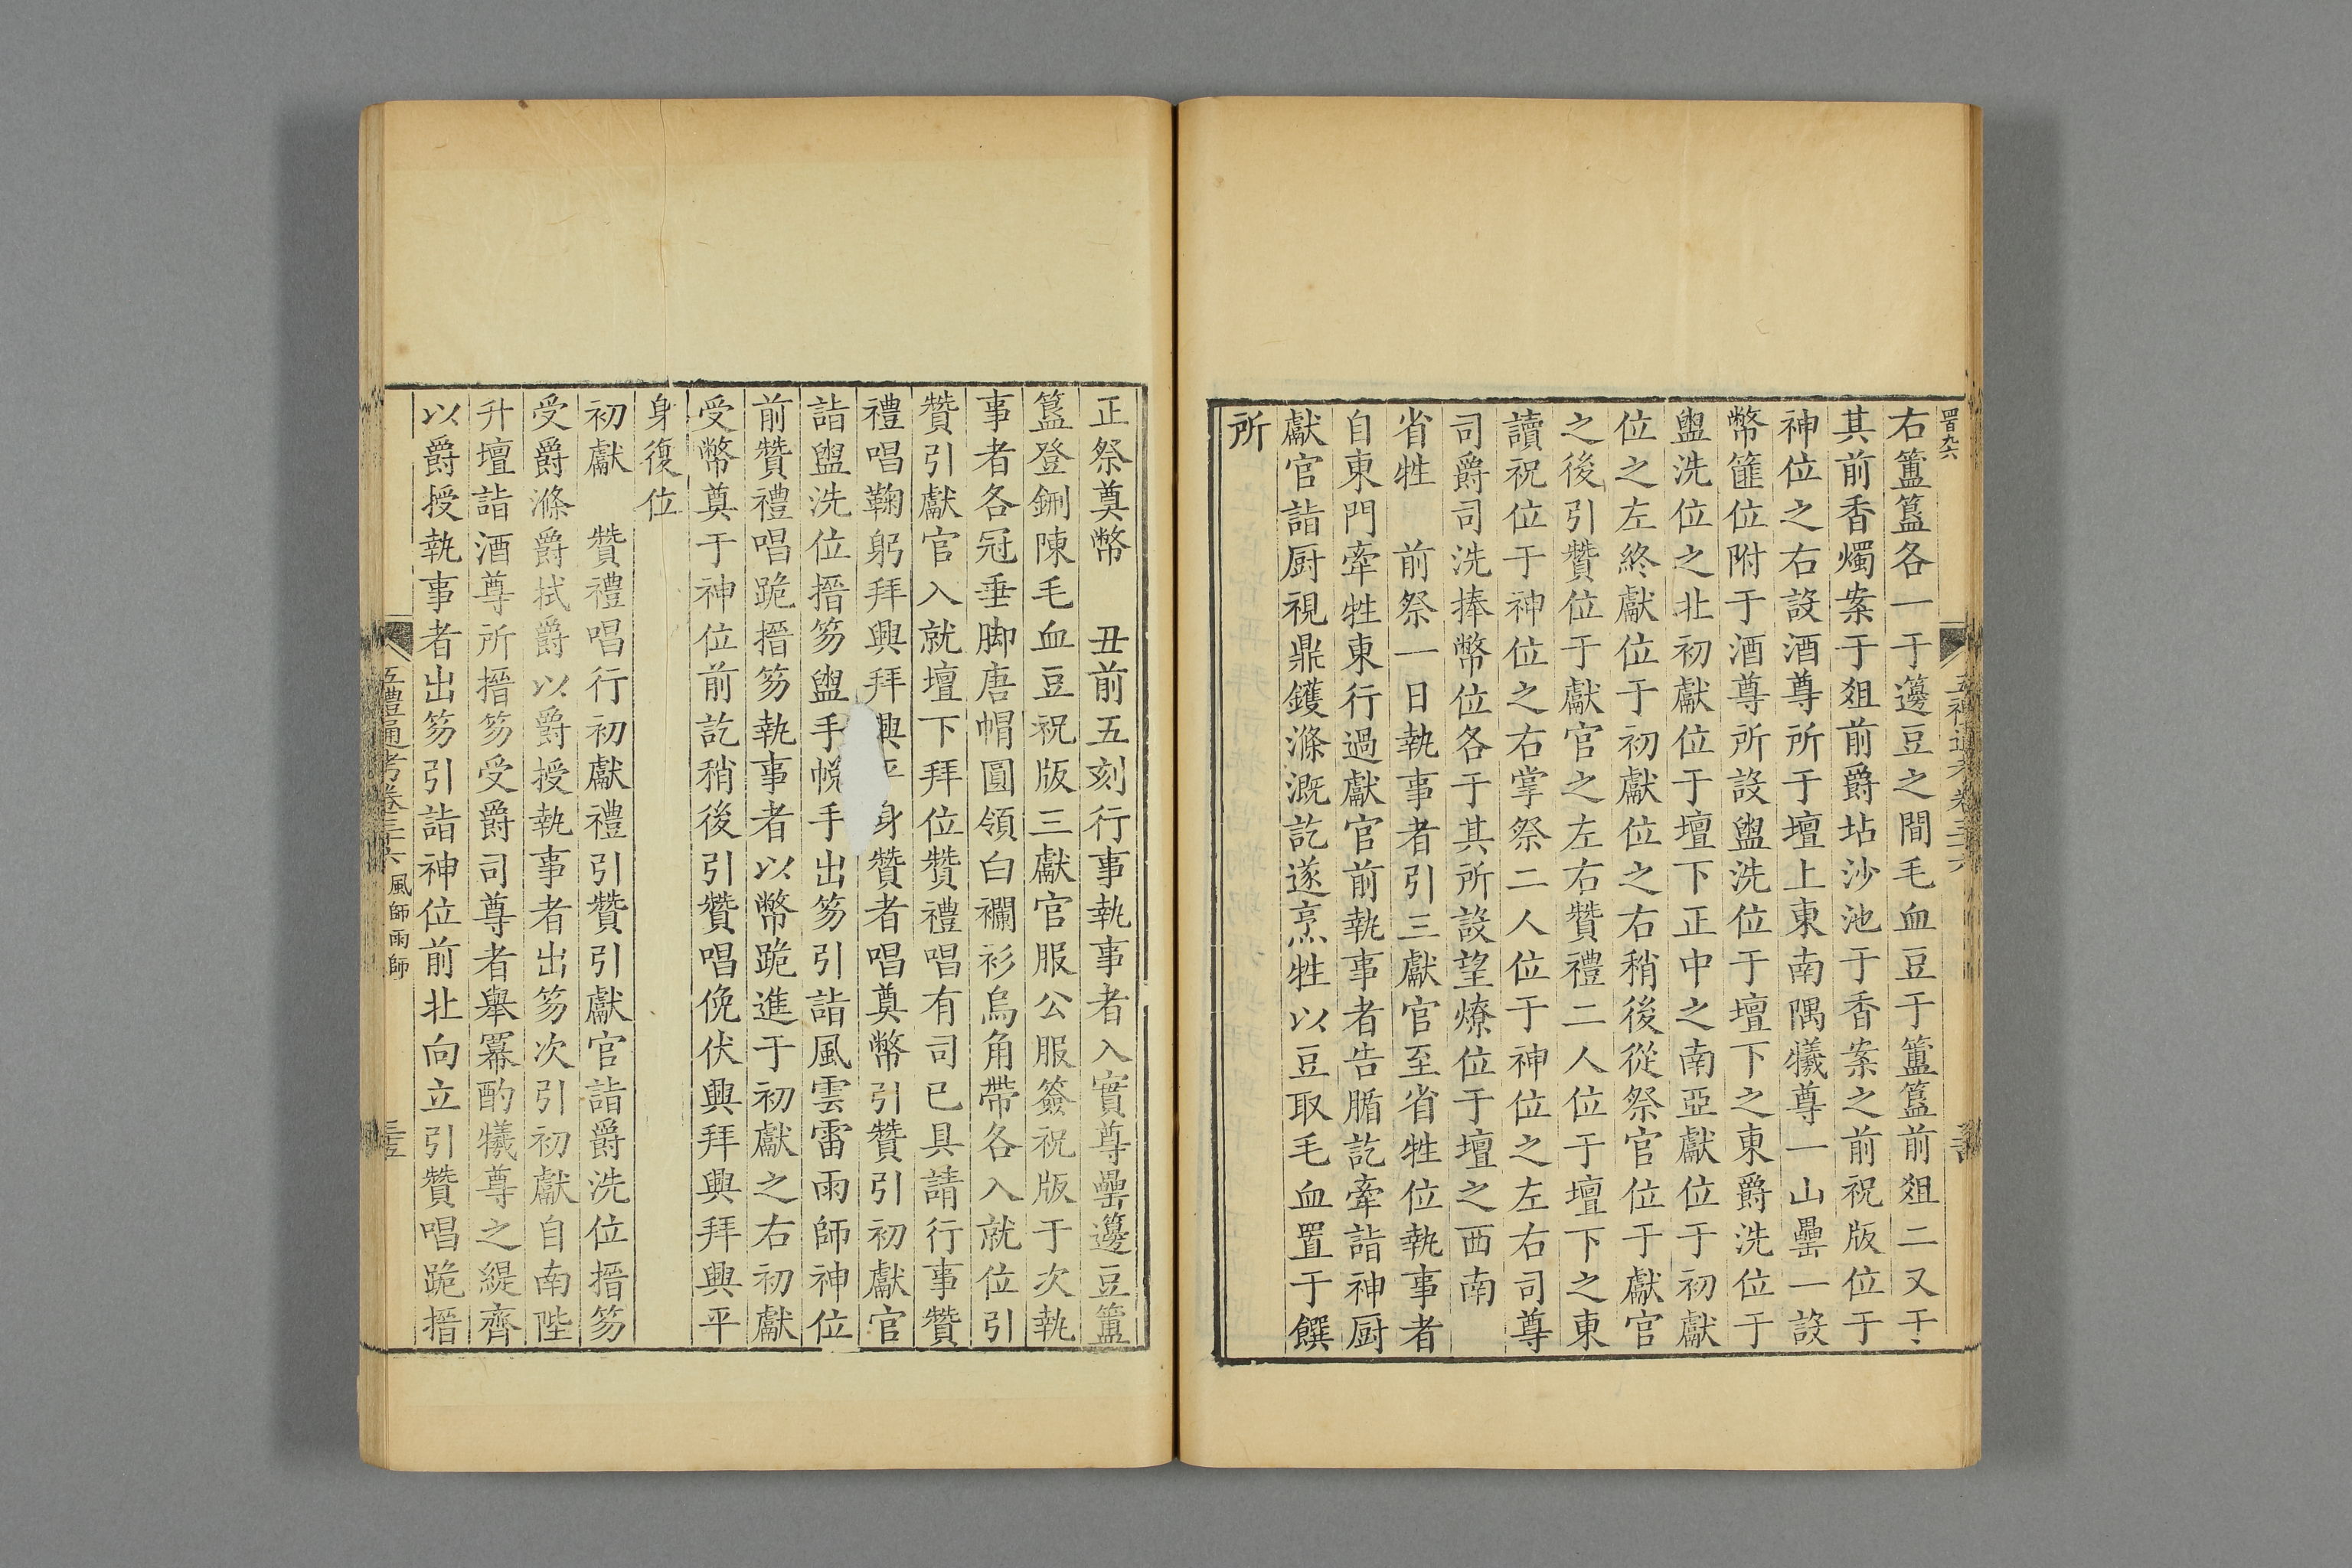 右簠簋各一于籩豆之間毛血豆于簠簋前俎二又于
其前香燭案于俎前爵坫沙池于香案之前祝版位于
神位之右設酒尊所于壇上東南隅犧尊一山罍一設
幣篚位附于酒尊所設盥洗位于壇下之東爵洗位于
盥洗位之北初獻位于壇下正中之南亞獻位于初獻
位之左終獻位于初獻位之右稍後從祭官位于獻官
之後引贊位于獻官之左右贊禮二人位于壇下之東
讀祝位于神位之右掌祭二人位于神位之左右司尊
司爵司洗捧幣位各于其所設望燎位于壇之西南
省牲　前祭一日執事者引三獻官至省牲位執事者
自東門牽牲東行過獻官前執事者告腯訖牽詣神厨
獻官詣厨視鼎鑊滌溉訖遂烹牲以豆取毛血置于饌
所
正祭奠幣　丑前五刻行事執事者入實尊罍籩豆簠
簋登鉶陳毛血豆祝版三獻官服公服簽祝版于次執
事者各冠垂脚唐帽圓領白襴衫烏角帶各入就位引
贊引獻官入就壇下拜位贊禮唱有司已具請行事贊
禮唱鞠躬拜興拜興平身贊者唱奠幣引贊引初獻官
詣盥洗位搢笏盥手帨手出笏引詣風雲雷雨師神位
前贊禮唱跪搢笏執事者以幣跪進于初獻之右初獻
受幣奠于神位前訖稍後引贊唱俛伏興拜興拜興平
身復位
初獻　贊禮唱行初獻禮引贊引獻官詣爵洗位搢笏
受爵滌爵拭爵以爵授執事者出笏次引初獻自南陛
升壇詣酒尊所搢笏受爵司尊者舉冪酌犧尊之緹齊
以爵授執事者出笏引詣神位前北向立引贊唱跪搢
五禮通考卷三十六 風師雨師